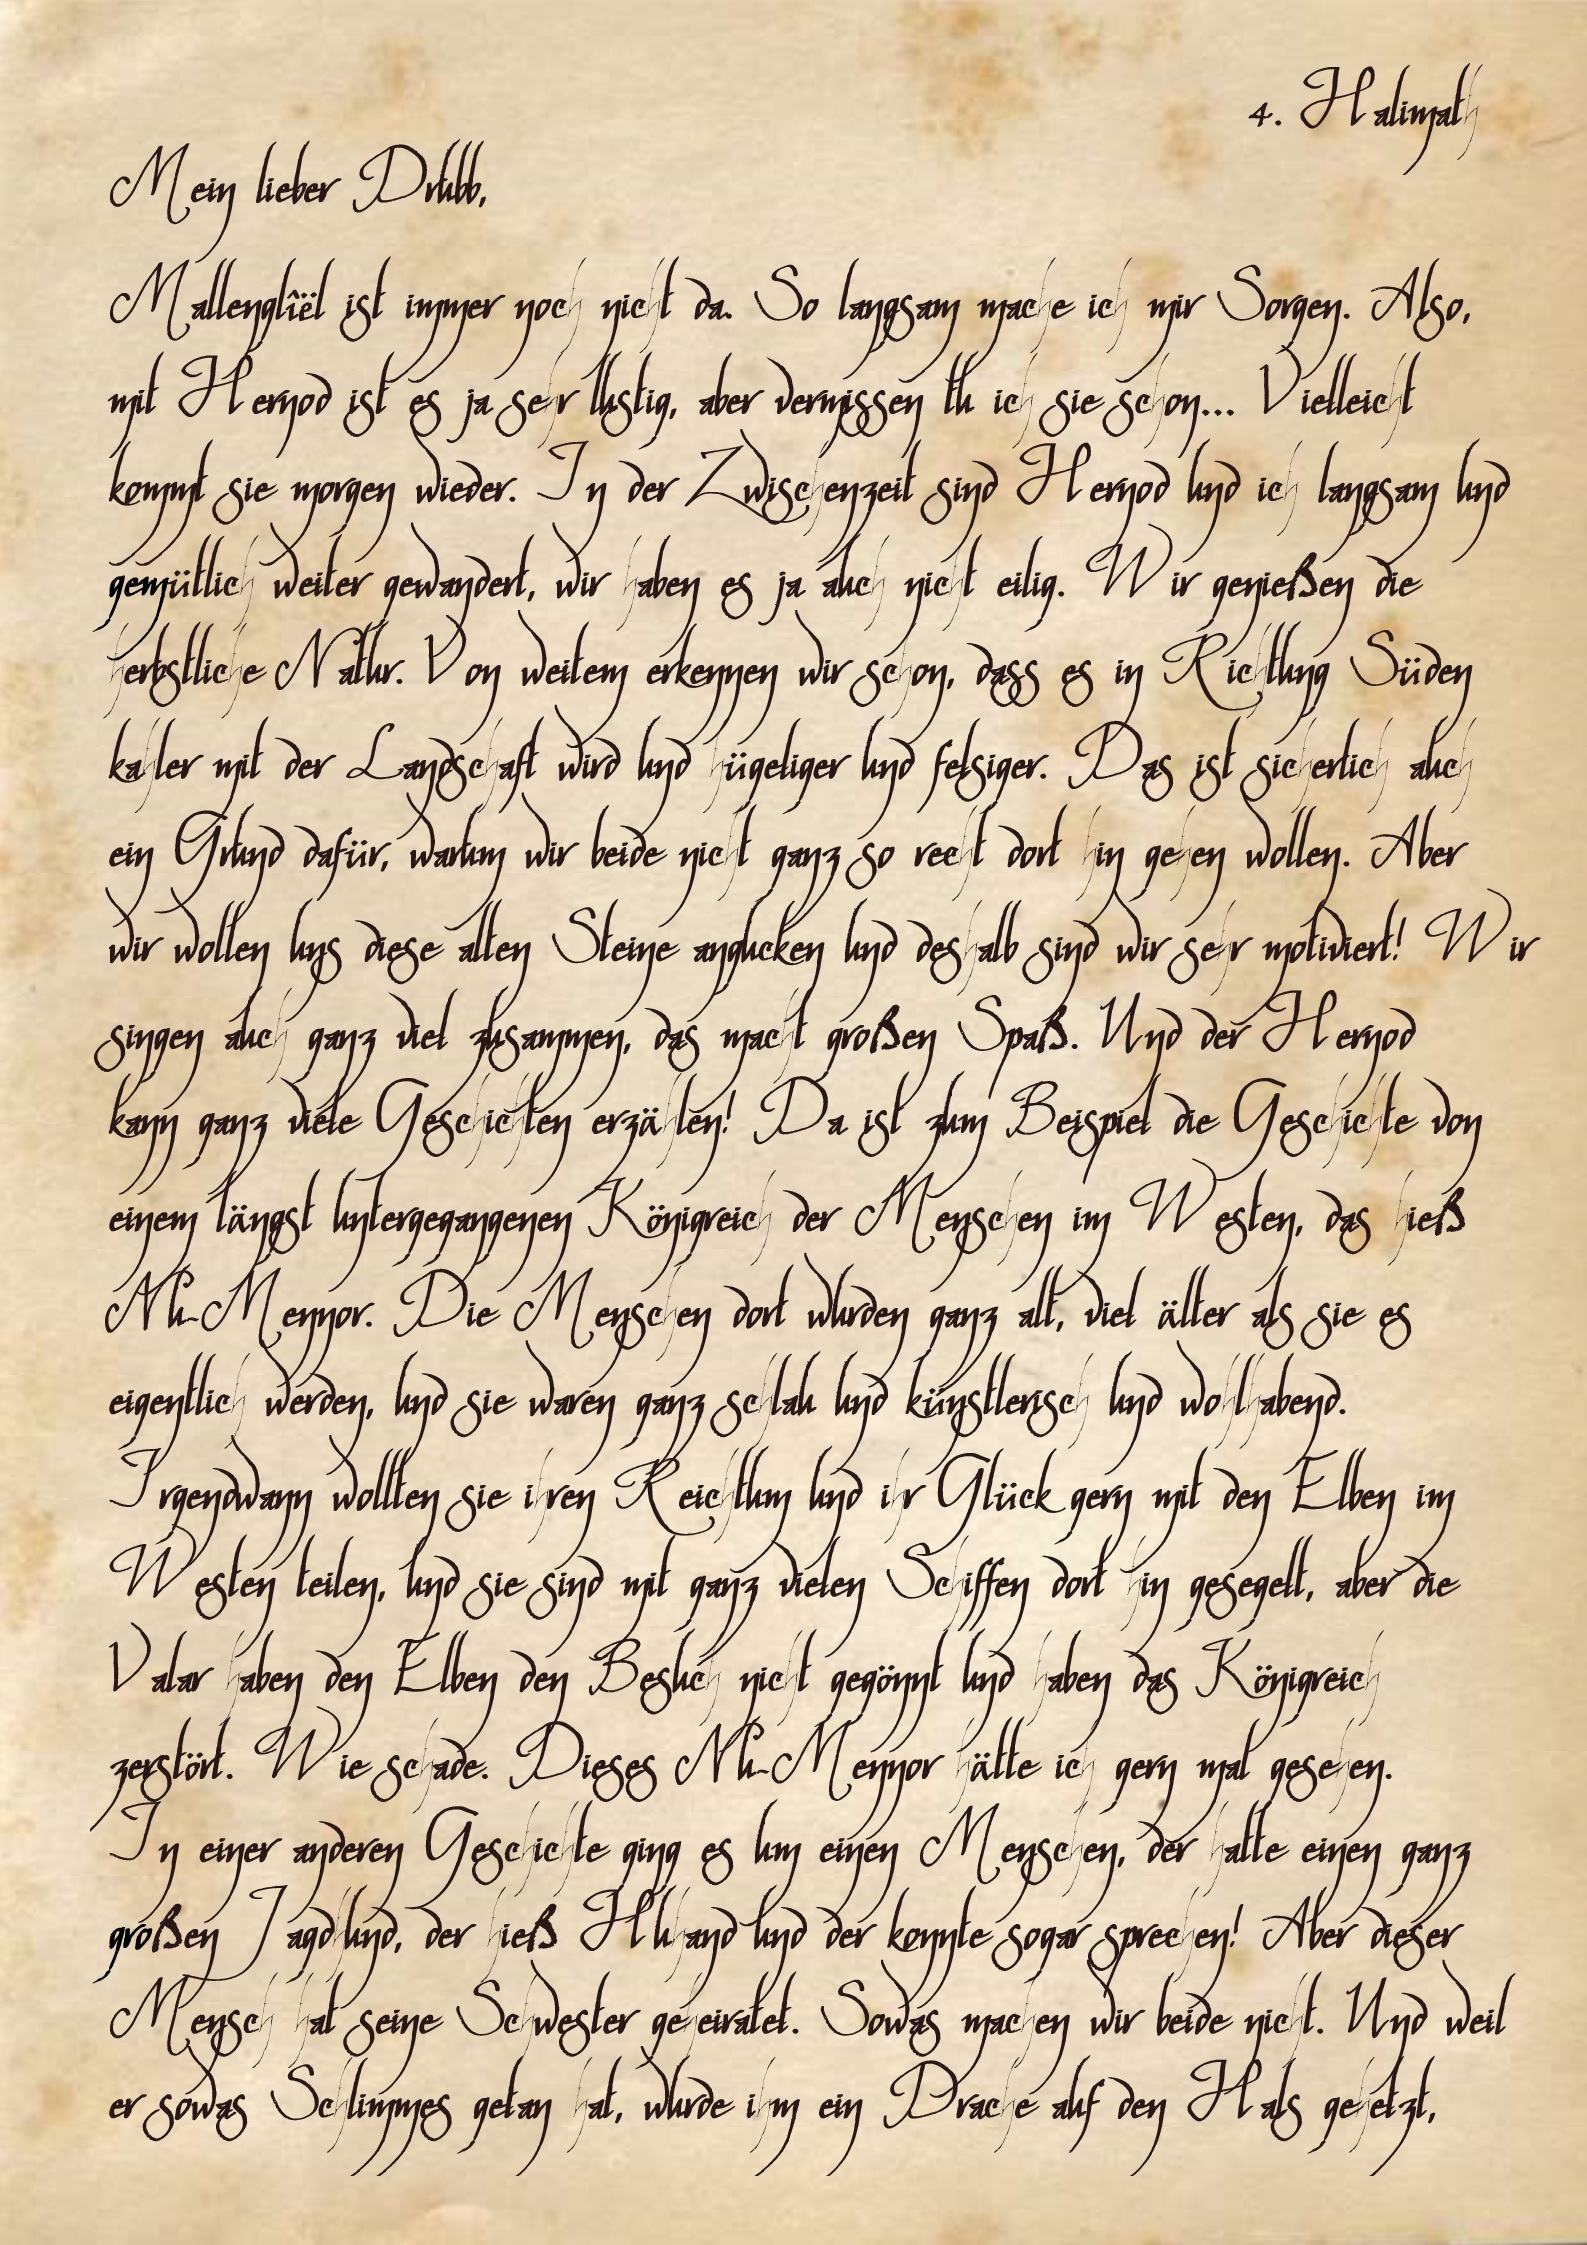 4. Halimath
Mein lieber Drubb,
Mallenglîël ist immer noch nicht da. So langsam mache ich mir Sorgen. Also,
mit Hernod ist es ja sehr lustig, aber vermissen tu ich sie schon... Vielleicht
kommt sie morgen wieder. In der Zwischenzeit sind Hernod und ich langsam und
gemütlich weiter gewandert, wir haben es ja auch nicht eilig. Wir genießen die
herbstliche Natur. Von weitem erkennen wir schon, dass es in Richtung Süden
kahler mit der Landschaft wird und hügeliger und felsiger. Das ist sicherlich auch
ein Grund dafür, warum wir beide nicht ganz so recht dort hin gehen wollen. Aber
wir wollen uns diese alten Steine angucken und deshalb sind wir sehr motiviert! Wir
singen auch ganz viel zusammen, das macht großen Spaß. Und der Hernod
kann ganz viele Geschichten erzählen! Da ist zum Beispiel die Geschichte von
einem längst untergegangenen Königreich der Menschen im Westen, das hieß
Nu-Mennor. Die Menschen dort wurden ganz alt, viel älter als sie es
eigentlich werden, und sie waren ganz schlau und künstlerisch und wohlhabend.
Irgendwann wollten sie ihren Reichtum und ihr Glück gern mit den Elben im
Westen teilen, und sie sind mit ganz vielen Schiffen dort hin gesegelt, aber die
Valar haben den Elben den Besuch nicht gegönnt und haben das Königreich
zerstört. Wie schade. Dieses Nu-Mennor hätte ich gern mal gesehen.
In einer anderen Geschichte ging es um einen Menschen, der hatte einen ganz
großen Jagdhund, der hieß Huhand und der konnte sogar sprechen! Aber dieser
Mensch hat seine Schwester geheiratet. Sowas machen wir beide nicht. Und weil
er sowas Schlimmes getan hat, wurde ihm ein Drache auf den Hals gehetzt,